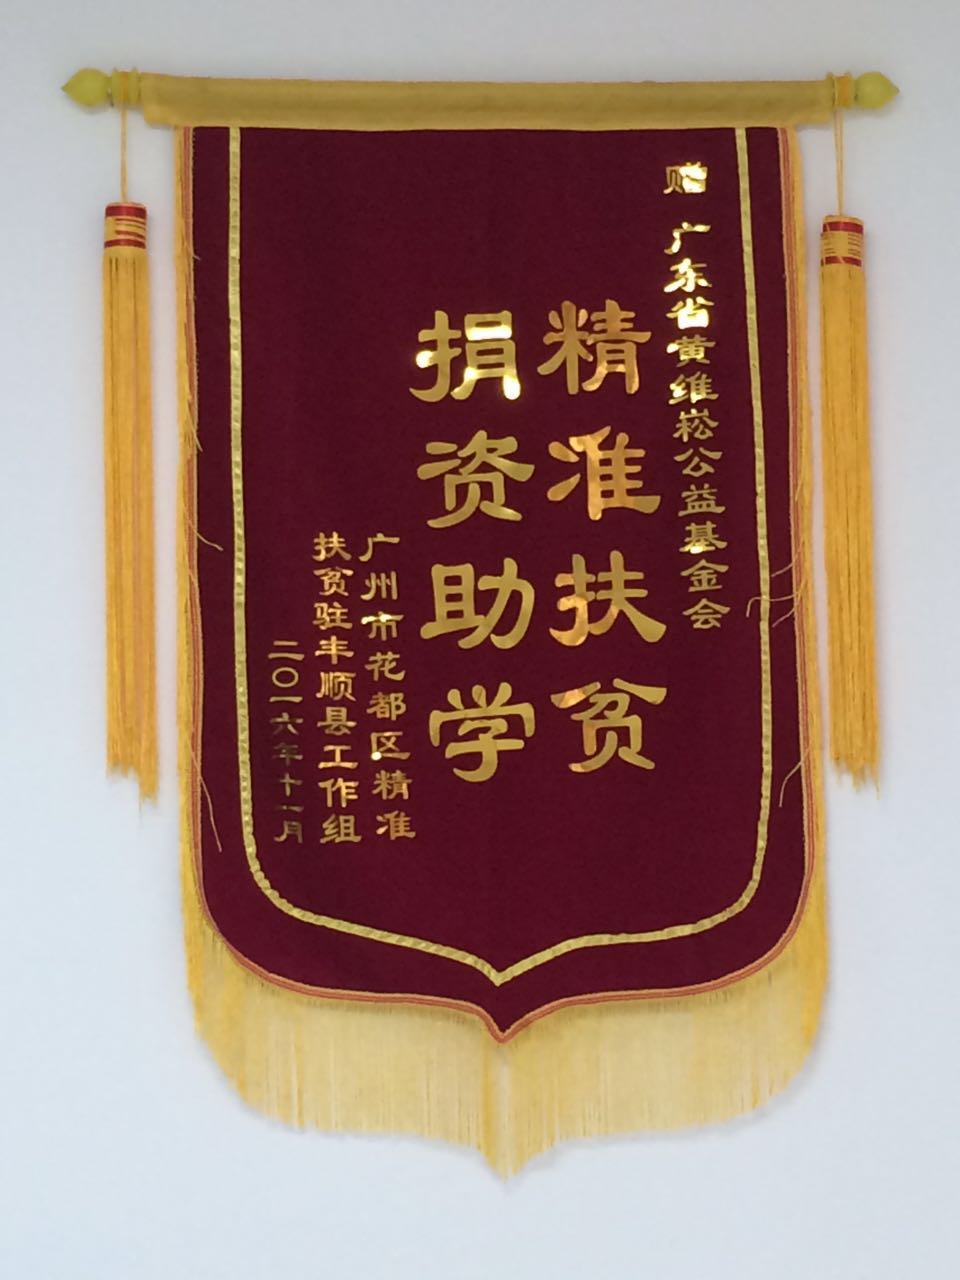 赠 广东省黄维崧公益基金会
精准扶贫
捐资助学
广州市花都区精准
扶贫驻丰顺县工作组
二〇一六年十一月